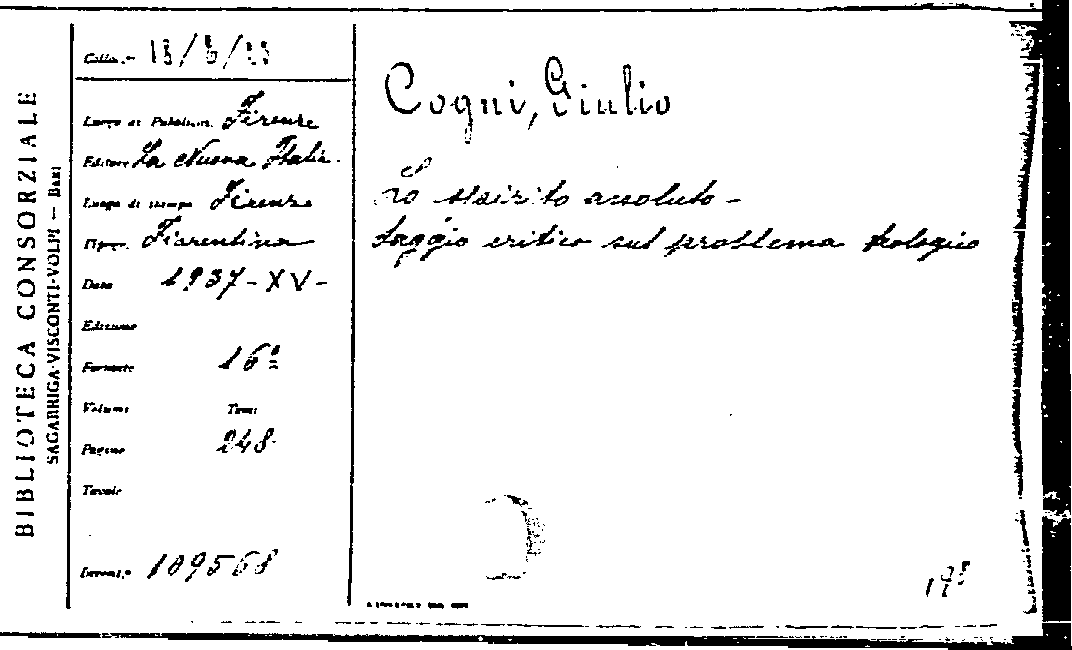 BIBLIOTECA CONSORZIALE
SAGARRIGA-VISCONTI-VOLPI — BARI
Colloc.ne
Luogo di Pubblicaz. Firenze
Editore La Nuova Italia.
Luogo di stampa Firenze
Tipogr. Fiorentina
Data 1937-XV-
Edizione
Formato 16º
Volumi Tomi
Pagine 248
Tavole
Invent.º 109568
Cogni, Giulio
Lo spirito assoluto -
Saggio critico sul problema teologico